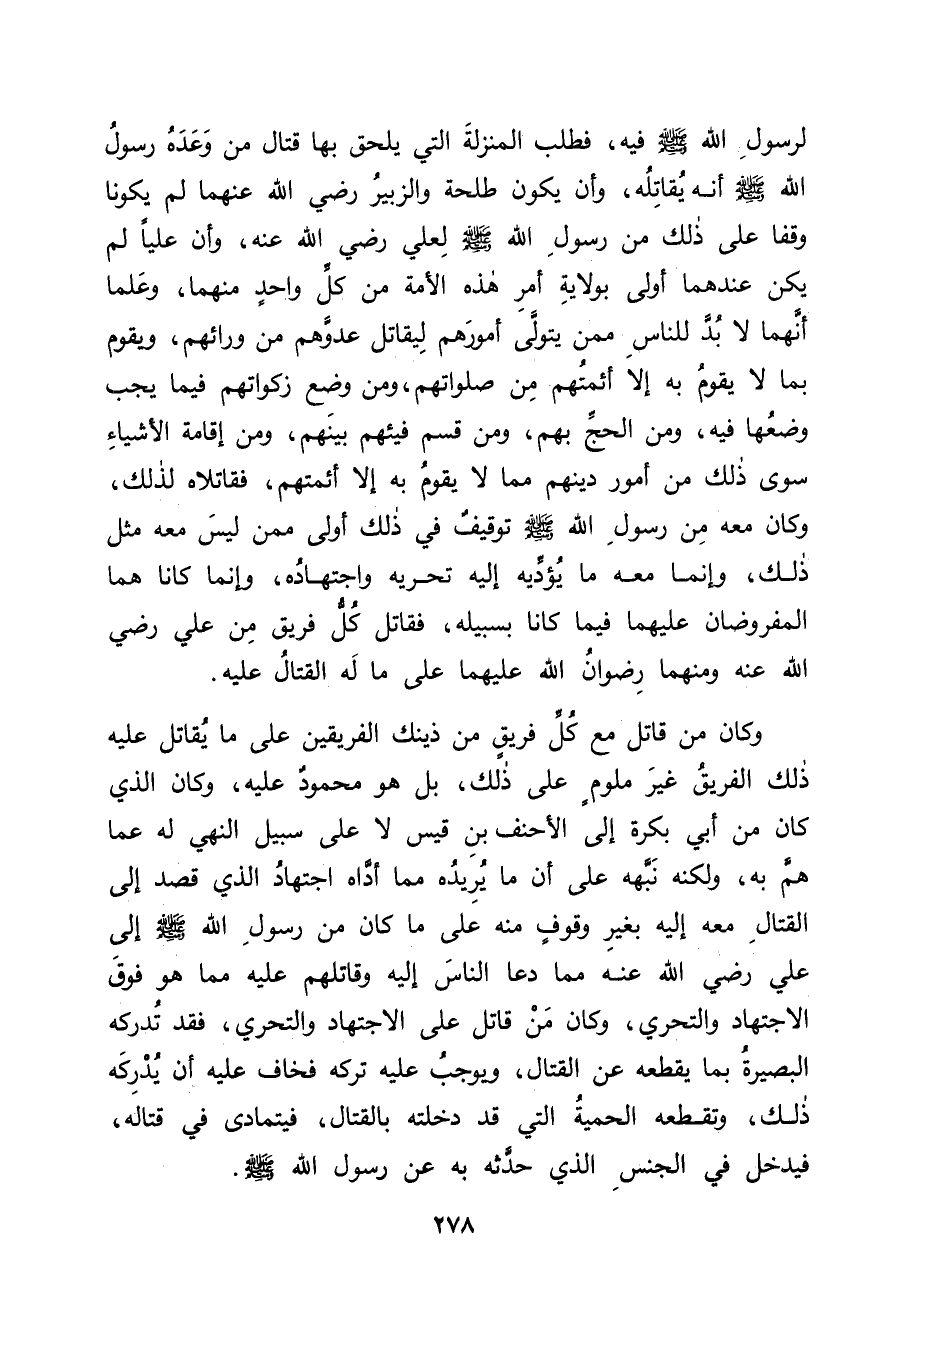 لرسولِ الله ﷺ فيه، فطلب المنزلةَ التي يلحق بها قتال من وَعَدَهُ رسولُ
الله ﷺ أنه يُقاتِلُه، وأن يكون طلحة والزبيرُ رضي الله عنهما لم يكونا
وقفا على ذٰلك من رسولِ الله ﷺ لِعلي رضي الله عنه، وأن علياً لم
يكن عندهما أولى بولايةِ أمرِ هٰذه الأمة من كلِّ واحدٍ منهما، وعَلما
أنَّهما لا بُدَّ للناسِ ممن يتولَّى أمورَهم لِيقاتل عدوَّهم من ورائهم، ويقوم
بما لا يقومُ به إلا أئمتُهم مِن صلواتهم، ومن وضع زكواتهم فيما يجب
وضعُها فيه، ومن الحجِّ بهم، ومن قسم فيئهم بينَهم، ومن إقامة الأشياءِ
سوى ذٰلك من أمور دينهم مما لا يقومُ به إلا أئمتهم، فقاتلاه لذٰلك،
وكان معه مِن رسولِ الله ﷺ توقيفٌ في ذٰلك أولى ممن ليسَ معه مثل
ذٰلك، وإنما معه ما يُؤدِّيه إليه تحريه واجتهادُه، وإنما كانا هما
المفروضان عليهما فيما كانا بسبيله، فقاتل كُلُّ فريق مِن علي رضي
الله عنه ومنهما رِضوانُ الله عليهما على ما لَه القتالُ عليه.
وكان من قاتل مع كُلِّ فريقٍ من ذينك الفريقين على ما يُقاتل عليه
ذٰلك الفريقُ غيرَ ملومٍ على ذٰلك، بل هو محمودٌ عليه، وكان الذي
كان من أبي بكرة إلى الأحنف بنِ قيس لا على سبيل النهي له عما
همَّ به، ولكنه نَبَّهه على أن ما يُرِيدُه مما أدَّاه اجتهادُ الذي قصد إلى
القتالِ معه إليه بغيرِ وقوفٍ منه على ما كان من رسولِ الله ﷺ إلى
علي رضي الله عنه مما دعا الناسَ إليه وقاتلهم عليه مما هو فوقَ
الاجتهاد والتحري، وكان مَنْ قاتل على الاجتهاد والتحري، فقد تُدركه
البصيرةُ بما يقطعه عن القتال، ويوجبُ عليه تركه فخاف عليه أن يُدْرِكَه
ذٰلك، وتقطعه الحميةُ التي قد دخلته بالقتال، فيتمادى في قتاله،
فيدخل في الجنسِ الذي حدَّثه به عن رسول الله ﷺ.
٢٧٨